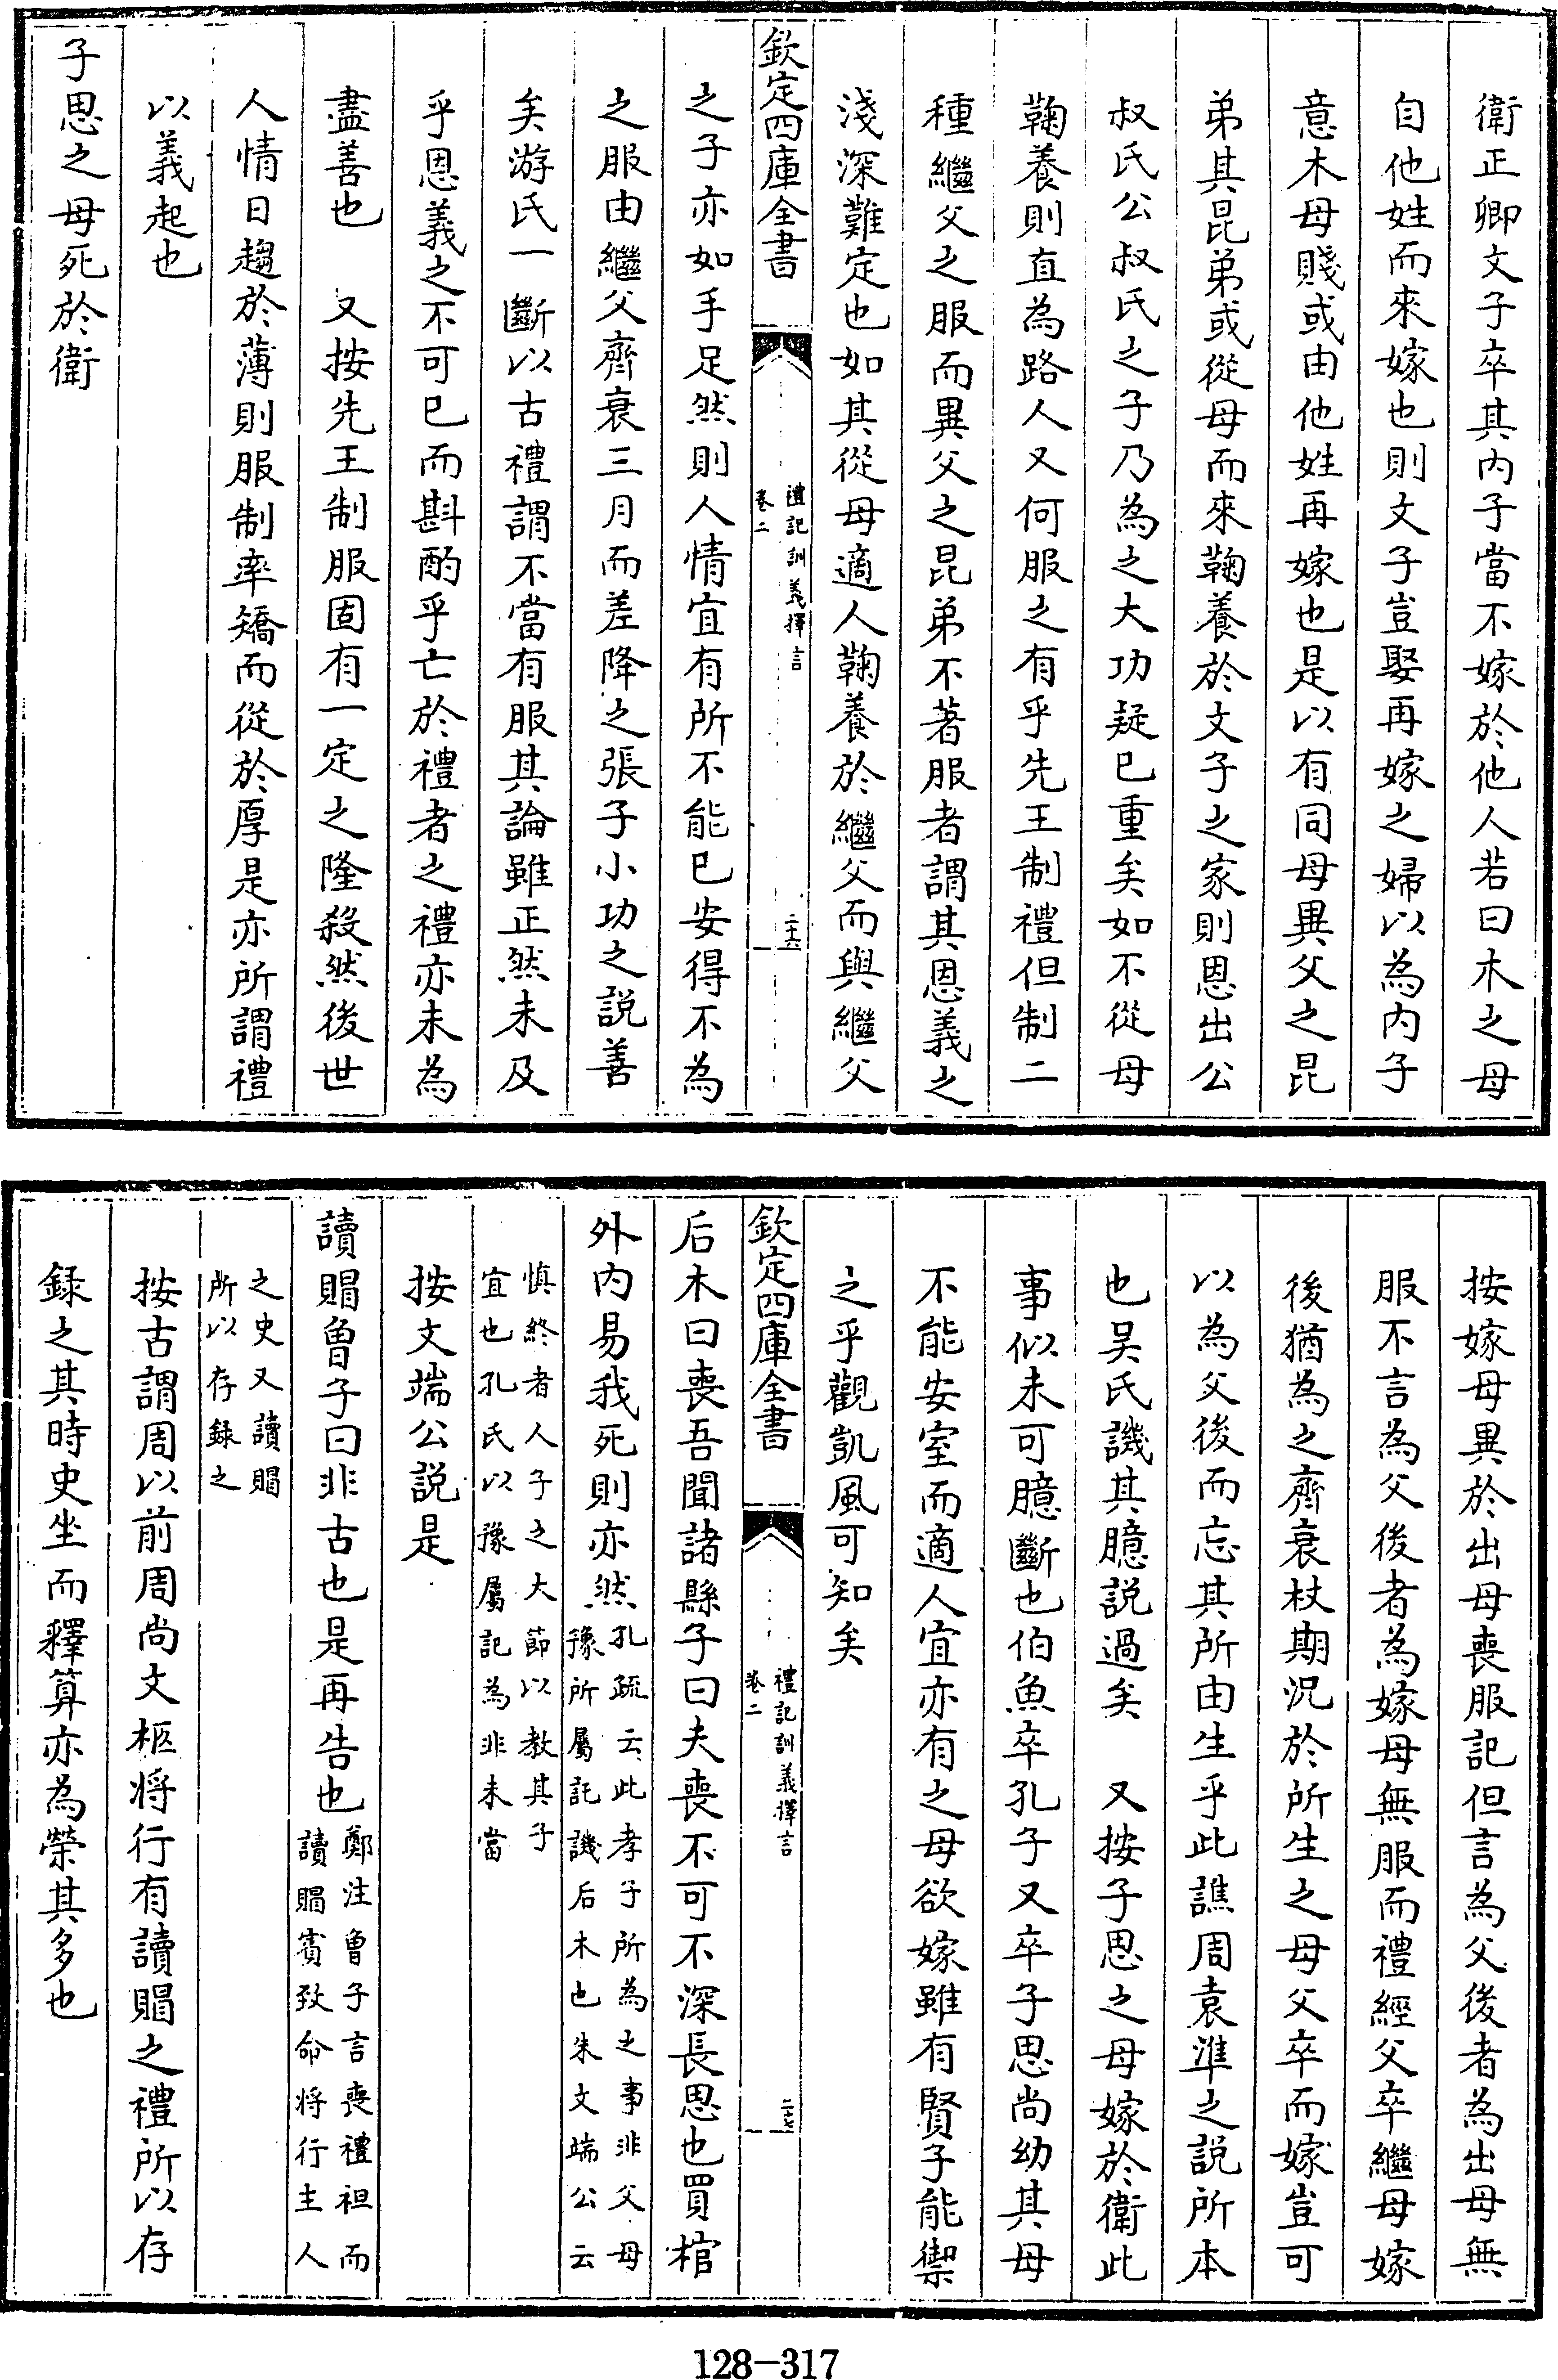 衛正卿文子卒其内子當不嫁於他人若曰木之母
自他姓而來嫁也則文子豈娶再嫁之婦以為内子
意木母賤或由他姓再嫁也是以有同母異父之昆
弟其昆弟或從母而來鞠養於文子之家則恩出公
叔氏公叔氏之子乃為之大功疑已重矣如不從母
鞠養則直為路人又何服之有乎先王制禮但制二
種繼父之服而異父之昆弟不著服者謂其恩義之
淺深難定也如其從母適人鞠養於繼父而與繼父
欽定四庫全書
禮記訓義擇言
卷二
二十六
之子亦如手足然則人情宜有所不能已安得不為
之服由繼父齊衰三月而差降之張子小功之説善
矣游氏一斷以古禮謂不當有服其論雖正然未及
乎恩義之不可已而斟酌乎亡於禮者之禮亦未為
盡善也　又按先王制服固有一定之隆殺然後世
人情日趨於薄則服制率矯而從於厚是亦所謂禮
以義起也
子思之母死於衛
按嫁母異於出母喪服記但言為父後者為出母無
服不言為父後者為嫁母無服而禮經父卒繼母嫁
後猶為之齊衰杖期況於所生之母父卒而嫁豈可
以為父後而忘其所由生乎此譙周袁準之説所本
也吴氏譏其臆説過矣　又按子思之母嫁於衛此
事似未可臆斷也伯魚卒孔子又卒子思尚幼其母
不能安室而適人宜亦有之母欲嫁雖有賢子能禦
之乎觀凱風可知矣
欽定四庫全書
禮記訓義擇言
卷二
二十七
后木曰喪吾聞諸縣子曰夫喪不可不深長思也買棺
外内易我死則亦然孔疏云此孝子所為之事非父母
豫所屬託譏后木也朱文端公云
慎終者人子之大節以教其子
宜也孔氏以豫屬記為非未當
按文端公説是
讀賵曾子曰非古也是再告也鄭注曾子言喪禮袒而
讀賵賓致命將行主人
之史又讀賵
所以存録之
按古謂周以前周尚文柩將行有讀賵之禮所以存
録之其時史坐而釋算亦為榮其多也
128-317